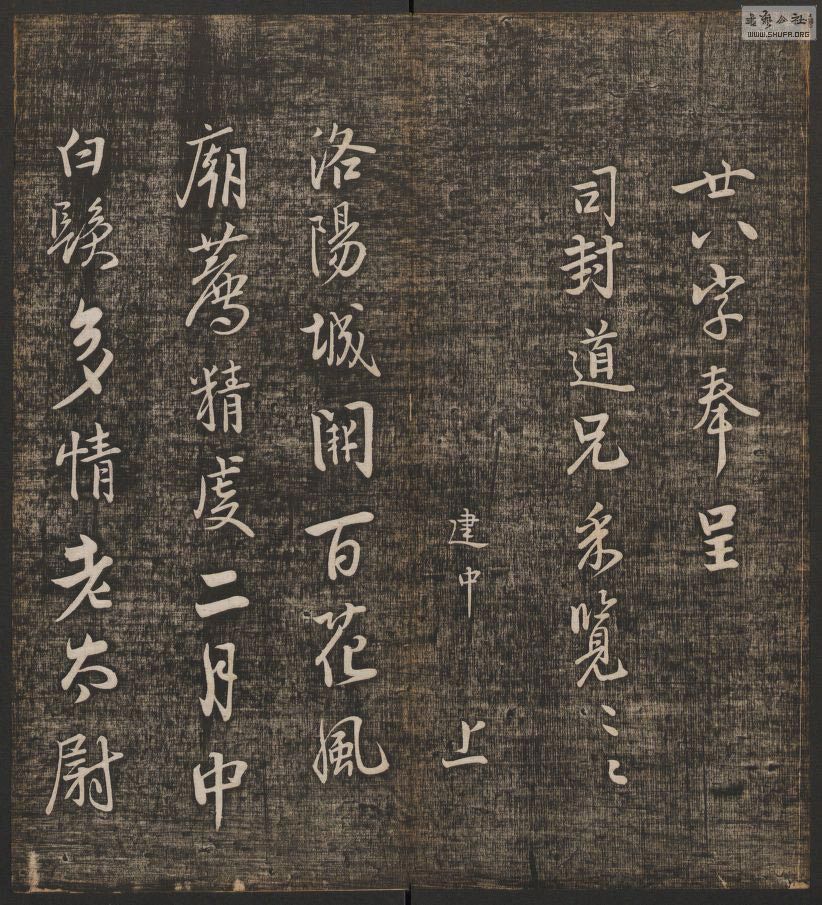 廿八字奉呈
司封道兄采覽〻〻
建中 上
洛陽城闕百花風
廟薦精虔二月中
白鬚多情老太尉
書藝公社
WWW.SHUFA.ORG